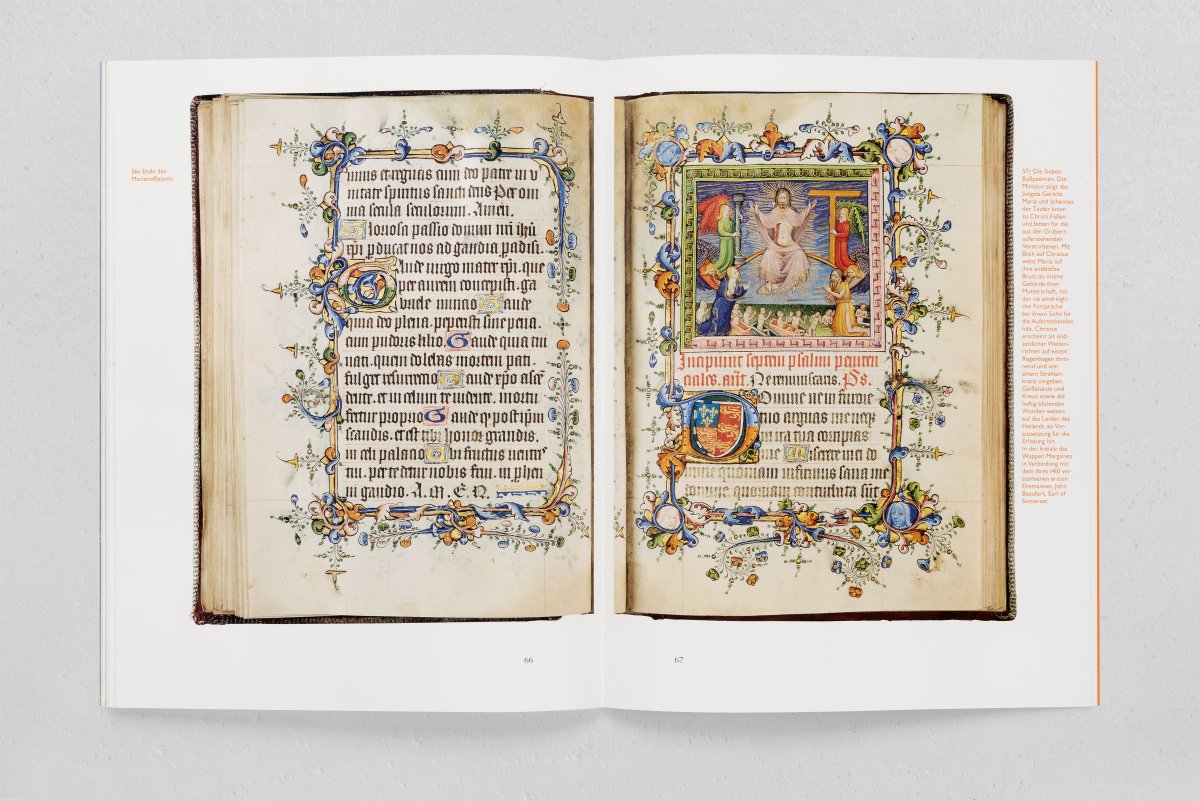 56v Ende des
Marienoffiziums
uiuis et regnas cum deo patre in v
nitate spiritus sancti deus Per om
nia secula seculorum. Amen.
Gloriosa passio domini nr̄i ihū
xp̄i pducat nos ad gaudia padisi.
Gaude virgo mater xp̄i. que
per aurem concepisti. ga
briele nuncio Gaude
quia deo plena. peperisti sine pena.
cum pudoris lilio. Gaude quia tui
nati. quem dolebas mortem pati
fulget resurrectio Gaude xp̄o ascē
dente. et in celum te vidente. motu
fertur proprio Gaude q̄ post ip̄m
scandis. et est tibi honor grandis.
in celi palacio Ubi fructus ventrˢ
tui. per te detur nobis frui. in phen
ni gaudio. A. M. E. N.
66
57
Incipiunt septem psalmi peniten
ciales. ant. Ne reminiscaris. Ps.
Domine ne in furore
tuo arguas me neqȝ
in ira tua corripias
me Miserere mei do
mine quoniam infirmus sum sana me
domine quoniam conturbata sūt
67
57r Die Sieben
Bußpsalmen: Die
Miniatur zeigt das
Jüngste Gericht.
Maria und Johannes
der Täufer knien
zu Christi Füßen
und bitten für die
aus den Gräbern
auferstehenden
Verstorbenen. Mit
Blick auf Christus
weist Maria auf
ihre entblößte
Brust als intime
Gebärde ihrer
Mutterschaft, mit
der sie eindringli-
che Fürsprache
bei ihrem Sohn für
die Auferstehenden
hält. Christus
erscheint als end-
zeitlicher Welten-
richter auf einem
Regenbogen thro-
nend und von
einem Strahlen-
kranz umgeben.
Geißelsäule und
Kreuz sowie die
heftig blutenden
Wunden weisen
auf das Leiden des
Heilands als Vor-
aussetzung für die
Erlösung hin.
In der Initiale das
Wappen Margarets
in Verbindung mit
dem ihres 1410 ver-
storbenen ersten
Ehemannes, John
Beaufort, Earl of
Somerset.